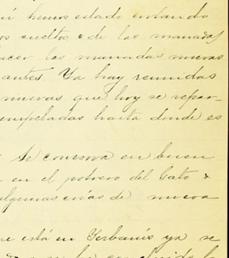 ú hemos estado entrando
os sueltos & de las manadas
acer las manadas nuevas
antes. Ya hay reunidas
nuevas que hoy se repar-
empeladas hasta donde es
Se conserva en buen
en el potrero del Gato &
algunas crías de nueva
ue está en Yerbanís ya se